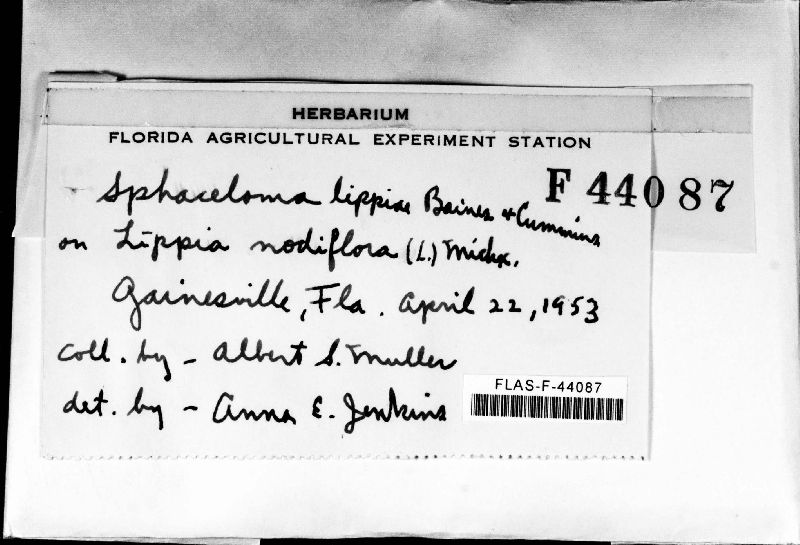 HERBARIUM
FLORIDA AGRICULTURAL EXPERIMENT STATION
F 44087
Sphaceloma lippiae Baines & Cummins
on Lippia nodiflora (L.) Michx.
Gainesville, Fla. April 22, 1953
coll. by - Albert S. Muller
det. by - Anna E. Jenkins
FLAS-F-44087